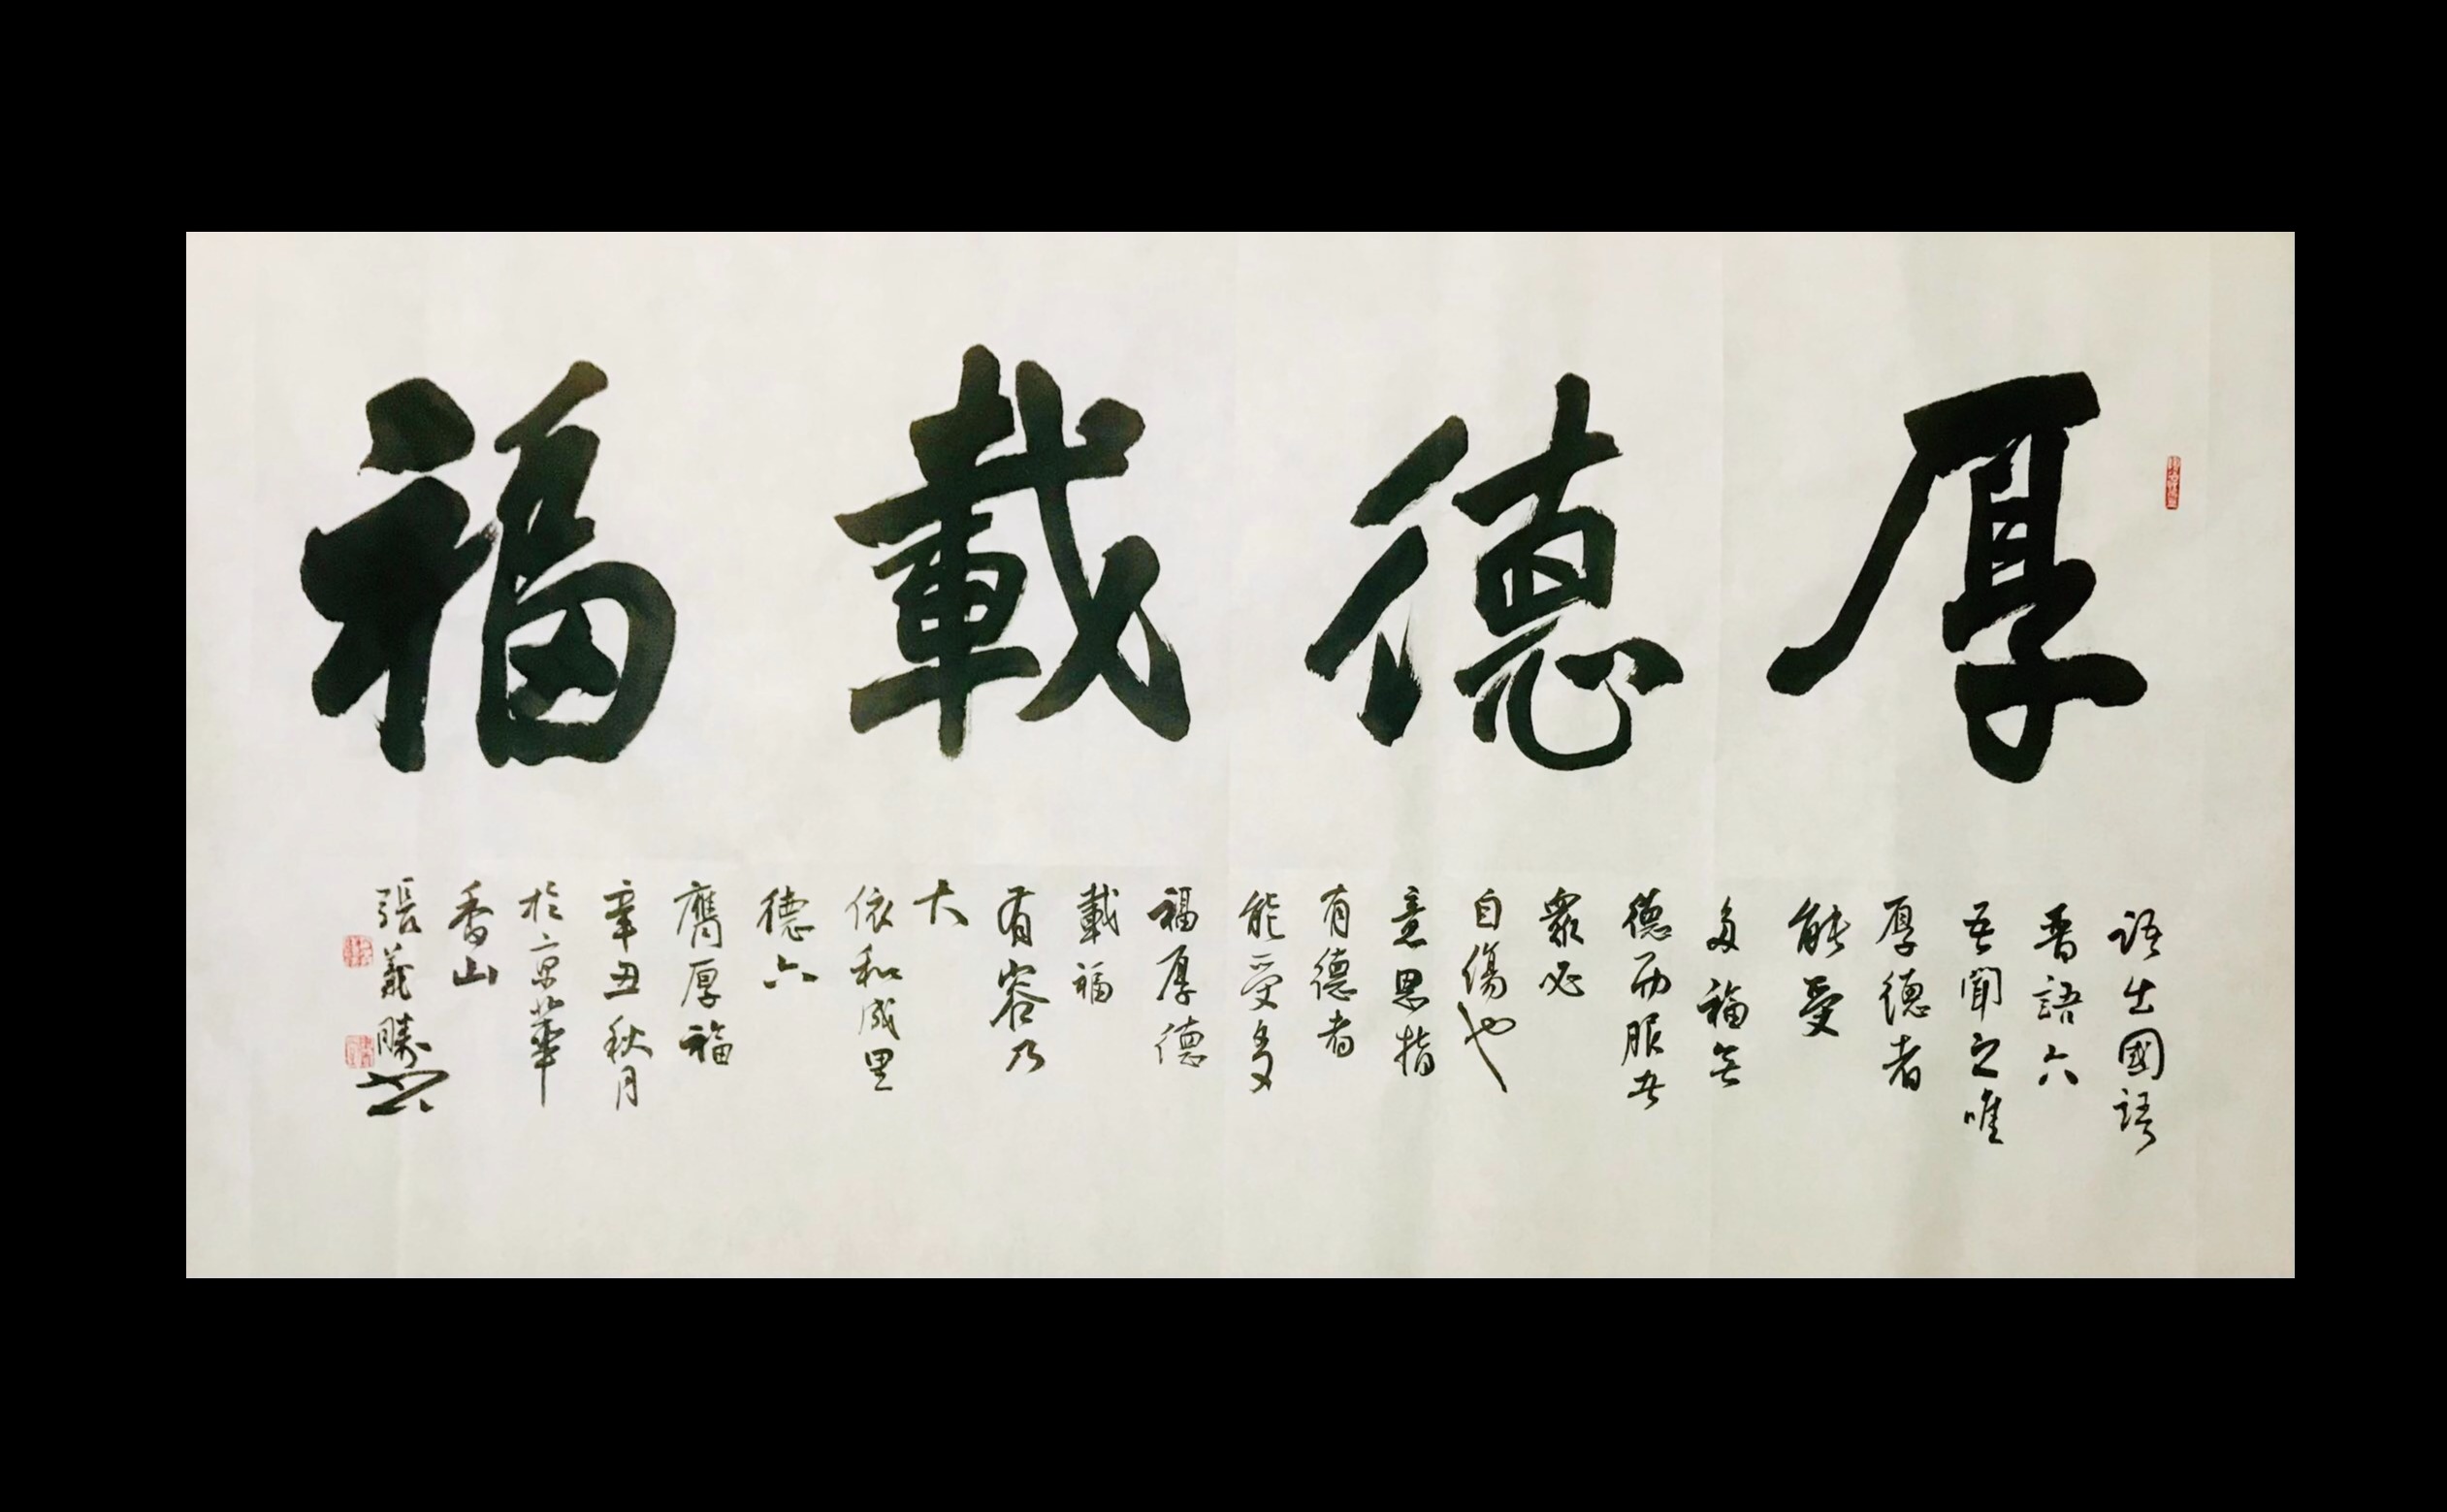 厚德載福
語出國語
晋語六
吾聞之唯
厚德者
能受
多福無
德而服者
衆必
自傷也
意思指
有德者
能受多
福厚德
載福
有容乃
大
依和成里
德六
膺厚福
辛丑秋月
於京華
香山
張義勝